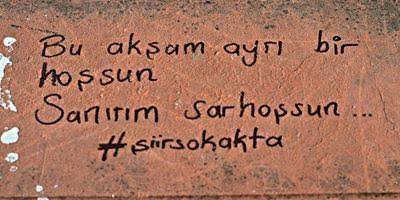 Bu akşam ayrı bir
hoşsun
Sanırım sarhoşsun...
#şiirsokakta